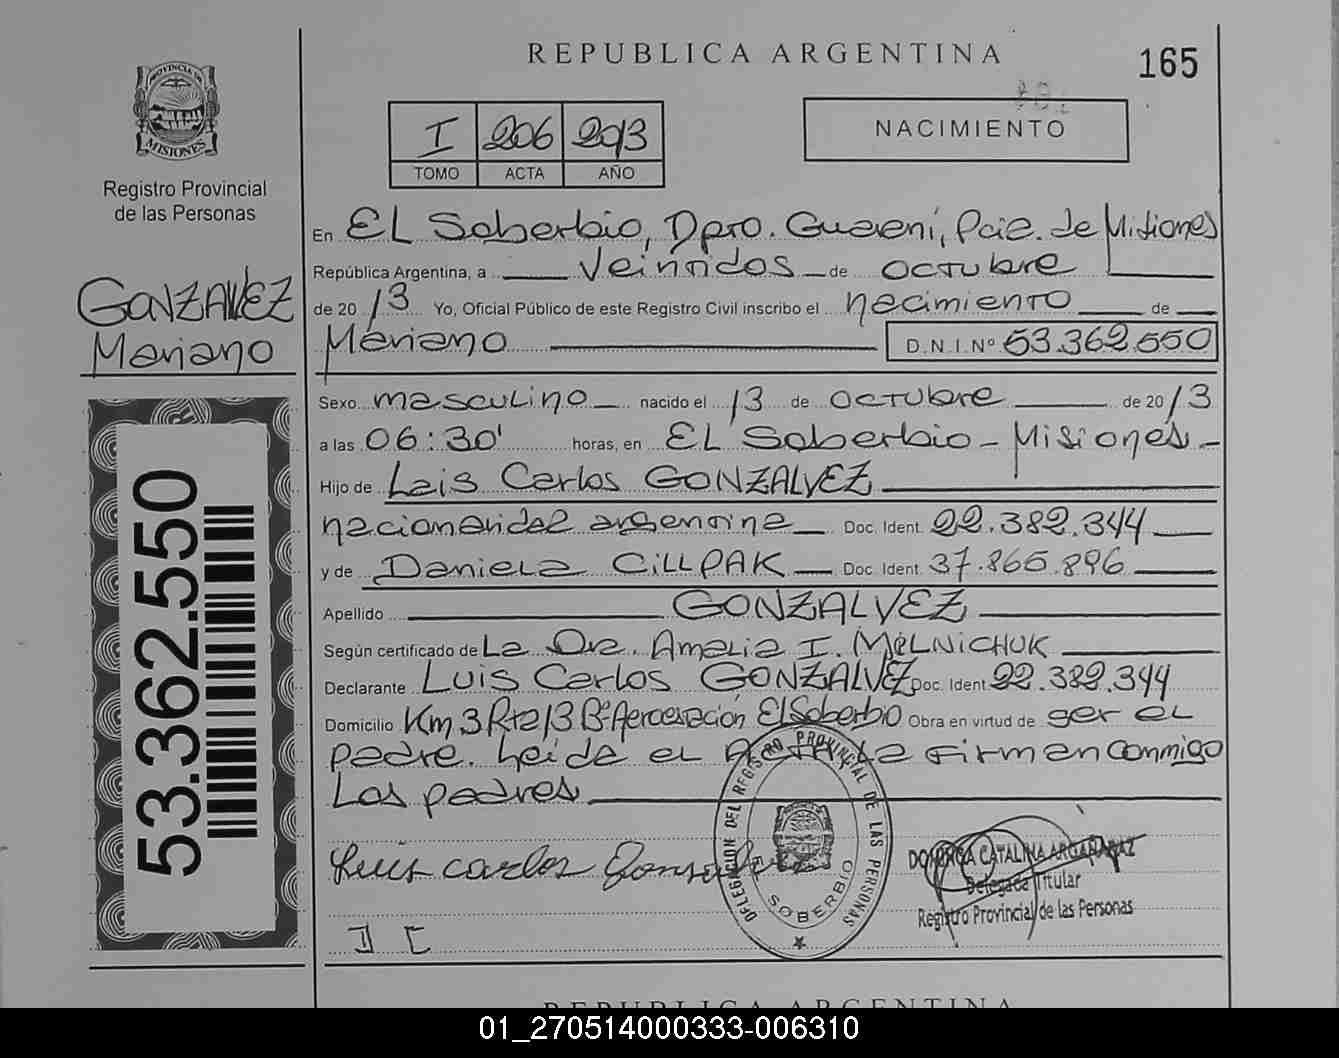 REPUBLICA ARGENTINA
165
PROVINCIA DE
MISIONES
Registro Provincial
de las Personas
I 206 2013
TOMO ACTA AÑO
NACIMIENTO
En EL Soberbio, Dpto. Guaraní, Pcia. de Misiones
República Argentina, a veintidos de octubre
de 2013 Yo, Oficial Público de este Registro Civil inscribo el nacimiento de
GONZALVEZ
Mariano
Mariano D.N.I.Nº 53.362.550
Sexo masculino nacido el 13 de octubre de 2013
a las 06:30' horas, en EL Soberbio - Misiones -
Hijo de Luis Carlos GONZALVEZ
nacionalidad argentina Doc. Ident. 22.382.344
y de Daniela CILLPAK Doc. Ident. 37.865.896
Apellido GONZALVEZ
Según certificado de La Dra. Amalia I. MELNICHUK
Declarante Luis Carlos GONZALVEZ Doc. Ident. 22.382.344
Domicilio Km 3 Rta 13 Bº Aeroestación El Soberbio Obra en virtud de ser el
padre. Leída el Acta La firman conmigo
Los padres
53.362.550
Luis carlos Gonzalvez
DELEGACION DEL REGISTRO PROVINCIAL DE LAS PERSONAS
EL SOBERBIO
DOMINGA CATALINA
Delegada Titular
Registro Provincial de las Personas
REPUBLICA ARGENTINA
01_270514000333-006310